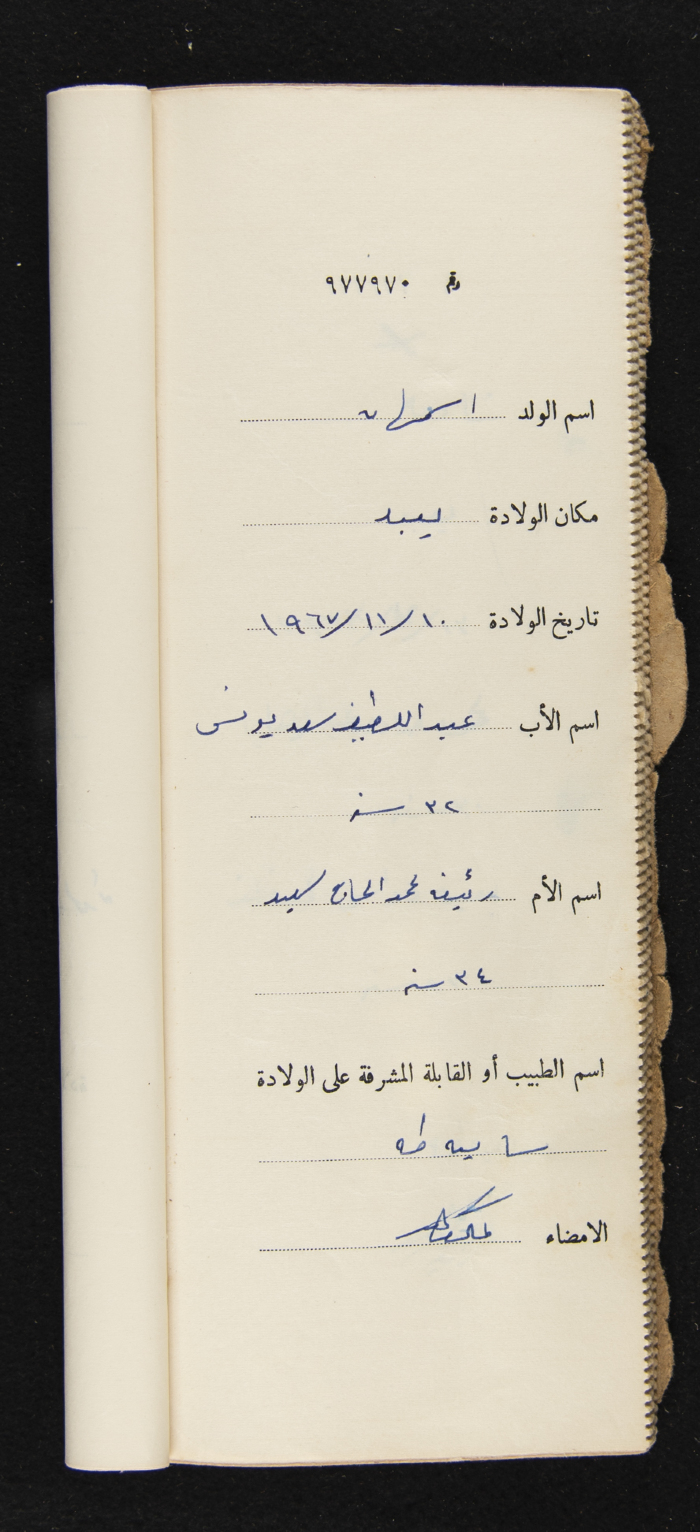 رقم ٩٧٧٩٧٠
اسم الولد اسمهان
مكان الولادة يعبد
تاريخ الولادة ١٠/١١/١٩٦٧
اسم الأب عبد اللطيف سعد يونس
٣٢ سنه
اسم الأم رئيفه محمد الحاج سعيد
٣٤ سنه
اسم الطبيب أو القابلة المشرفة على الولادة
ساميه طه
الامضاء